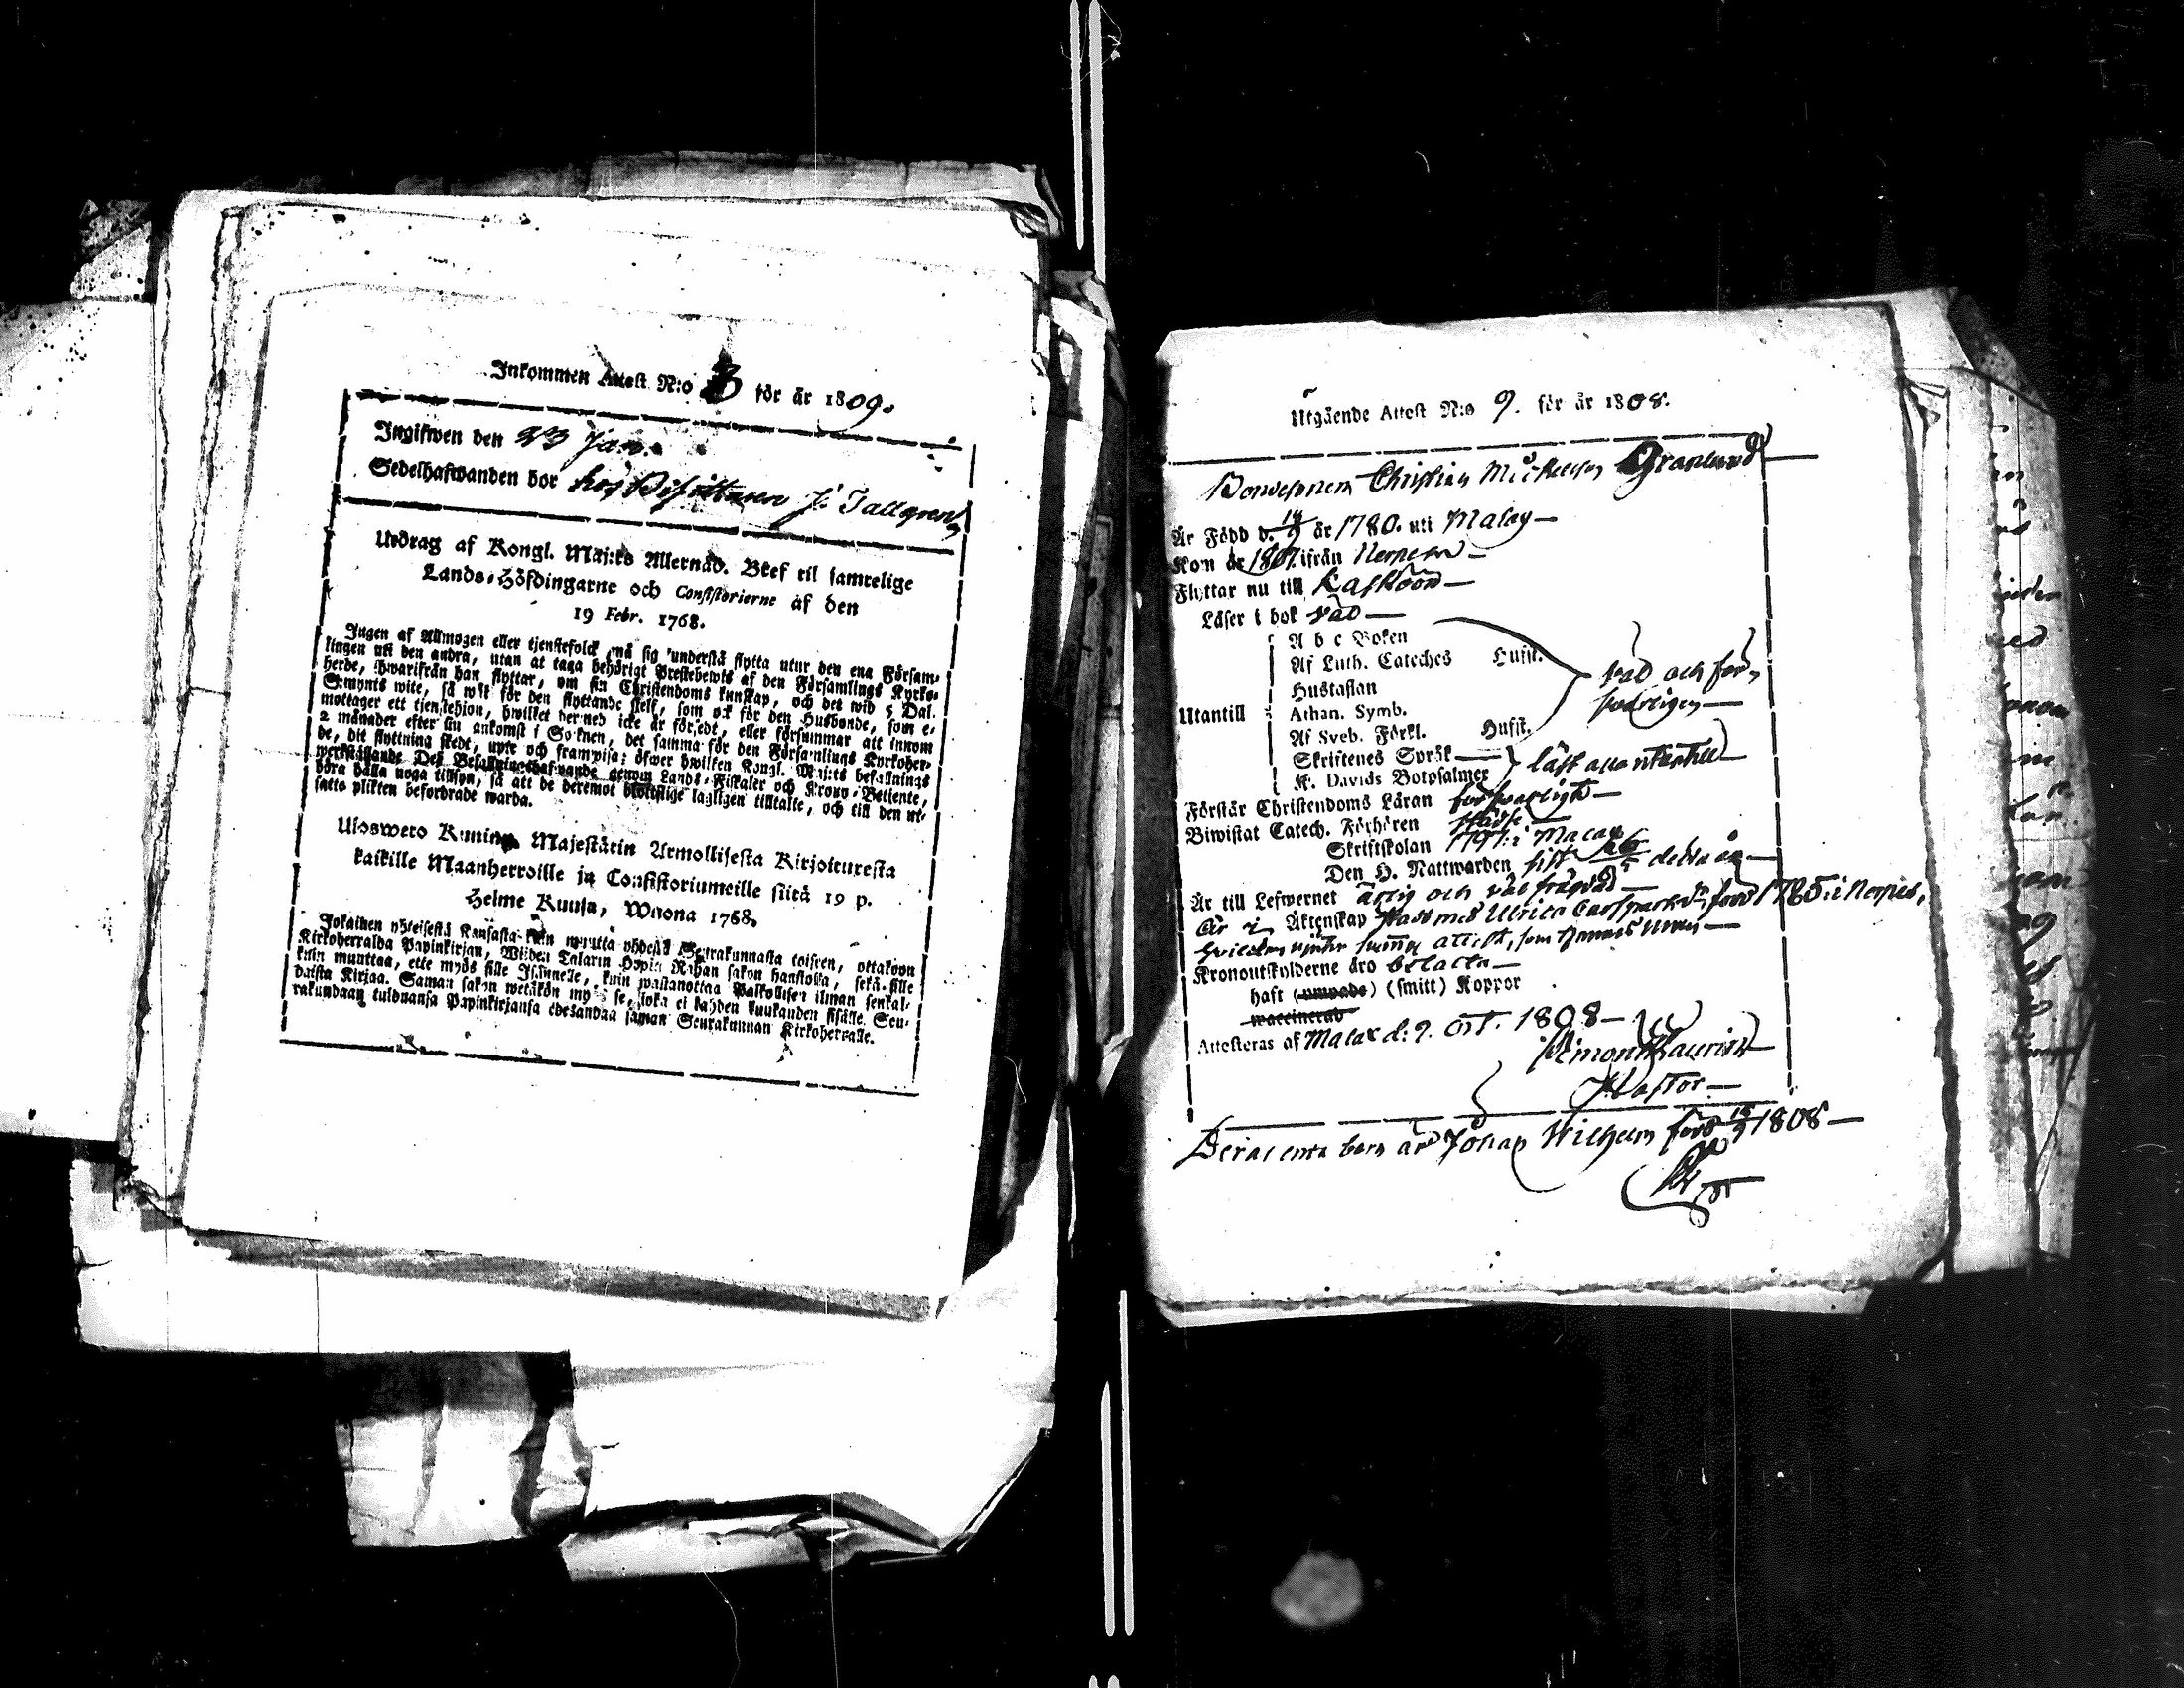 Inkommen Attest N:o 3 för år 1809.
Ingifwen den 23 Jan.
Sedelhafwanden bor hos J. Tallgren
Utdrag af Kongl. Maj:ts Allernåd. Bref til samtelige
Lands-Höfdingarne och Consistorierne af den
19 Febr. 1768.
Ingen af Allmogen eller tjenstefolck må sig understå flytta utur den ena Försam-
lingen uti den andra, utan at taga behörigt Prestebewis af den Församlings Kyrko-
herde, hwarifrån han flyttar, om sin Christendoms kunskap, och det wid 5 Dal.
S:mynts wite, så wäl för den flyttande sielf, som ock för den Husbonde, som e-
mottager ett tjenstehion, hwilket dermed icke är försedt, eller försummar att innom
2 månader efter sin ankomst i Socknen, det samma för den Församlings Kyrkoher-
de, dit flyttning skedt, upte och framwisa; öfwer hwilken Kongl. Maj:ts befallnings
werkställande Dess Befallningshafwande genom Lands-Fiskaler och Krono-Betiente,
böra hålla noga tillsyn, så att de deremot brotslige lagligen tilltalte, och till den ut-
satte plikten befordrade warda.
Uloswero Kuning. Majestätin Armollisesta Kirjoituxesta
kaikille Maanherroille ja Consistoriumeille siitä 19 p.
Helme Kuusa, Wuonna 1768.
Jokainen yhteisestä Kansasta kuin muutta yhdestä Seurakunnasta toiseen, ottakoon
Kirkoherralda Papinkirjan, Wiiden Talarin Hopia Rahan sakon haastolla, sekä sille
kuin muuttaa, ette myös sille Isännelle, kuin wastanottaa Palkollisen ilman senkal-
daista Kirjaa. Saman sakon wetäkön myös se, joka ei kahden kuukauden sisälle Seu-
rakundaan tulduansa Papinkirjansa edesandaa saman Seurakunnan Kirkoherralle.
Utgående Attest N:o 9. för år 1808.
Bondesonen Christian Mickelsson Granlund
Är Född d. 18/9 år 1780. uti Malax
Kom år 1807 ifrån Nerpes
Flyttar nu till Kaskö
Läser i bok väl
A b c Boken
Af Luth. Cateches Hufst.
Hustaflan
Utantill Athan. Symb.
Af Sveb. Förkl. Hufst.
väl och för-
svarligen
Skriftenes Språk
K. Davids Botpsalmer
läst utantill
Förstår Christendoms Läran försvarligt
Biwistat Catech. Förhören
Skriftskolan 1797 i Malax
Den H. Nattwarden sist detta år
Är till Lefwernet ärlig och väl frägdad
Är i Äktenskap med Ulrica född 1785 i Nerpes,
Kronoutskylderne äro betalta
haft (ympade) (smitt) Koppor
waccinerad
Attesteras af Malax d: 9. Oct. 1808
Pastor
Deras barn är Johan Wilhelm född 1808